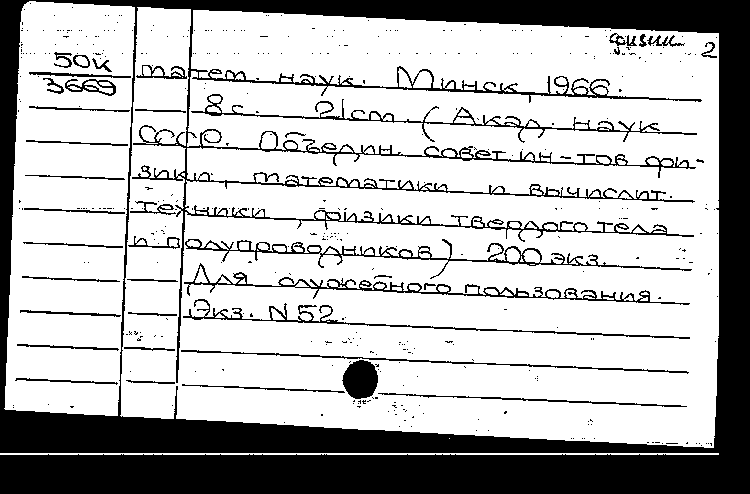 физии 2
50к
3669
матем. наук. Минск, 1966.
8 с. 21 cm. (Акад. наук
СССР. Объедин. совет ин-тов фи-
зики, математики и вычислит.
техники, физики твердого тела
и полупроводников) 200 экз.
Для служебного пользования.
Экз. N 52.